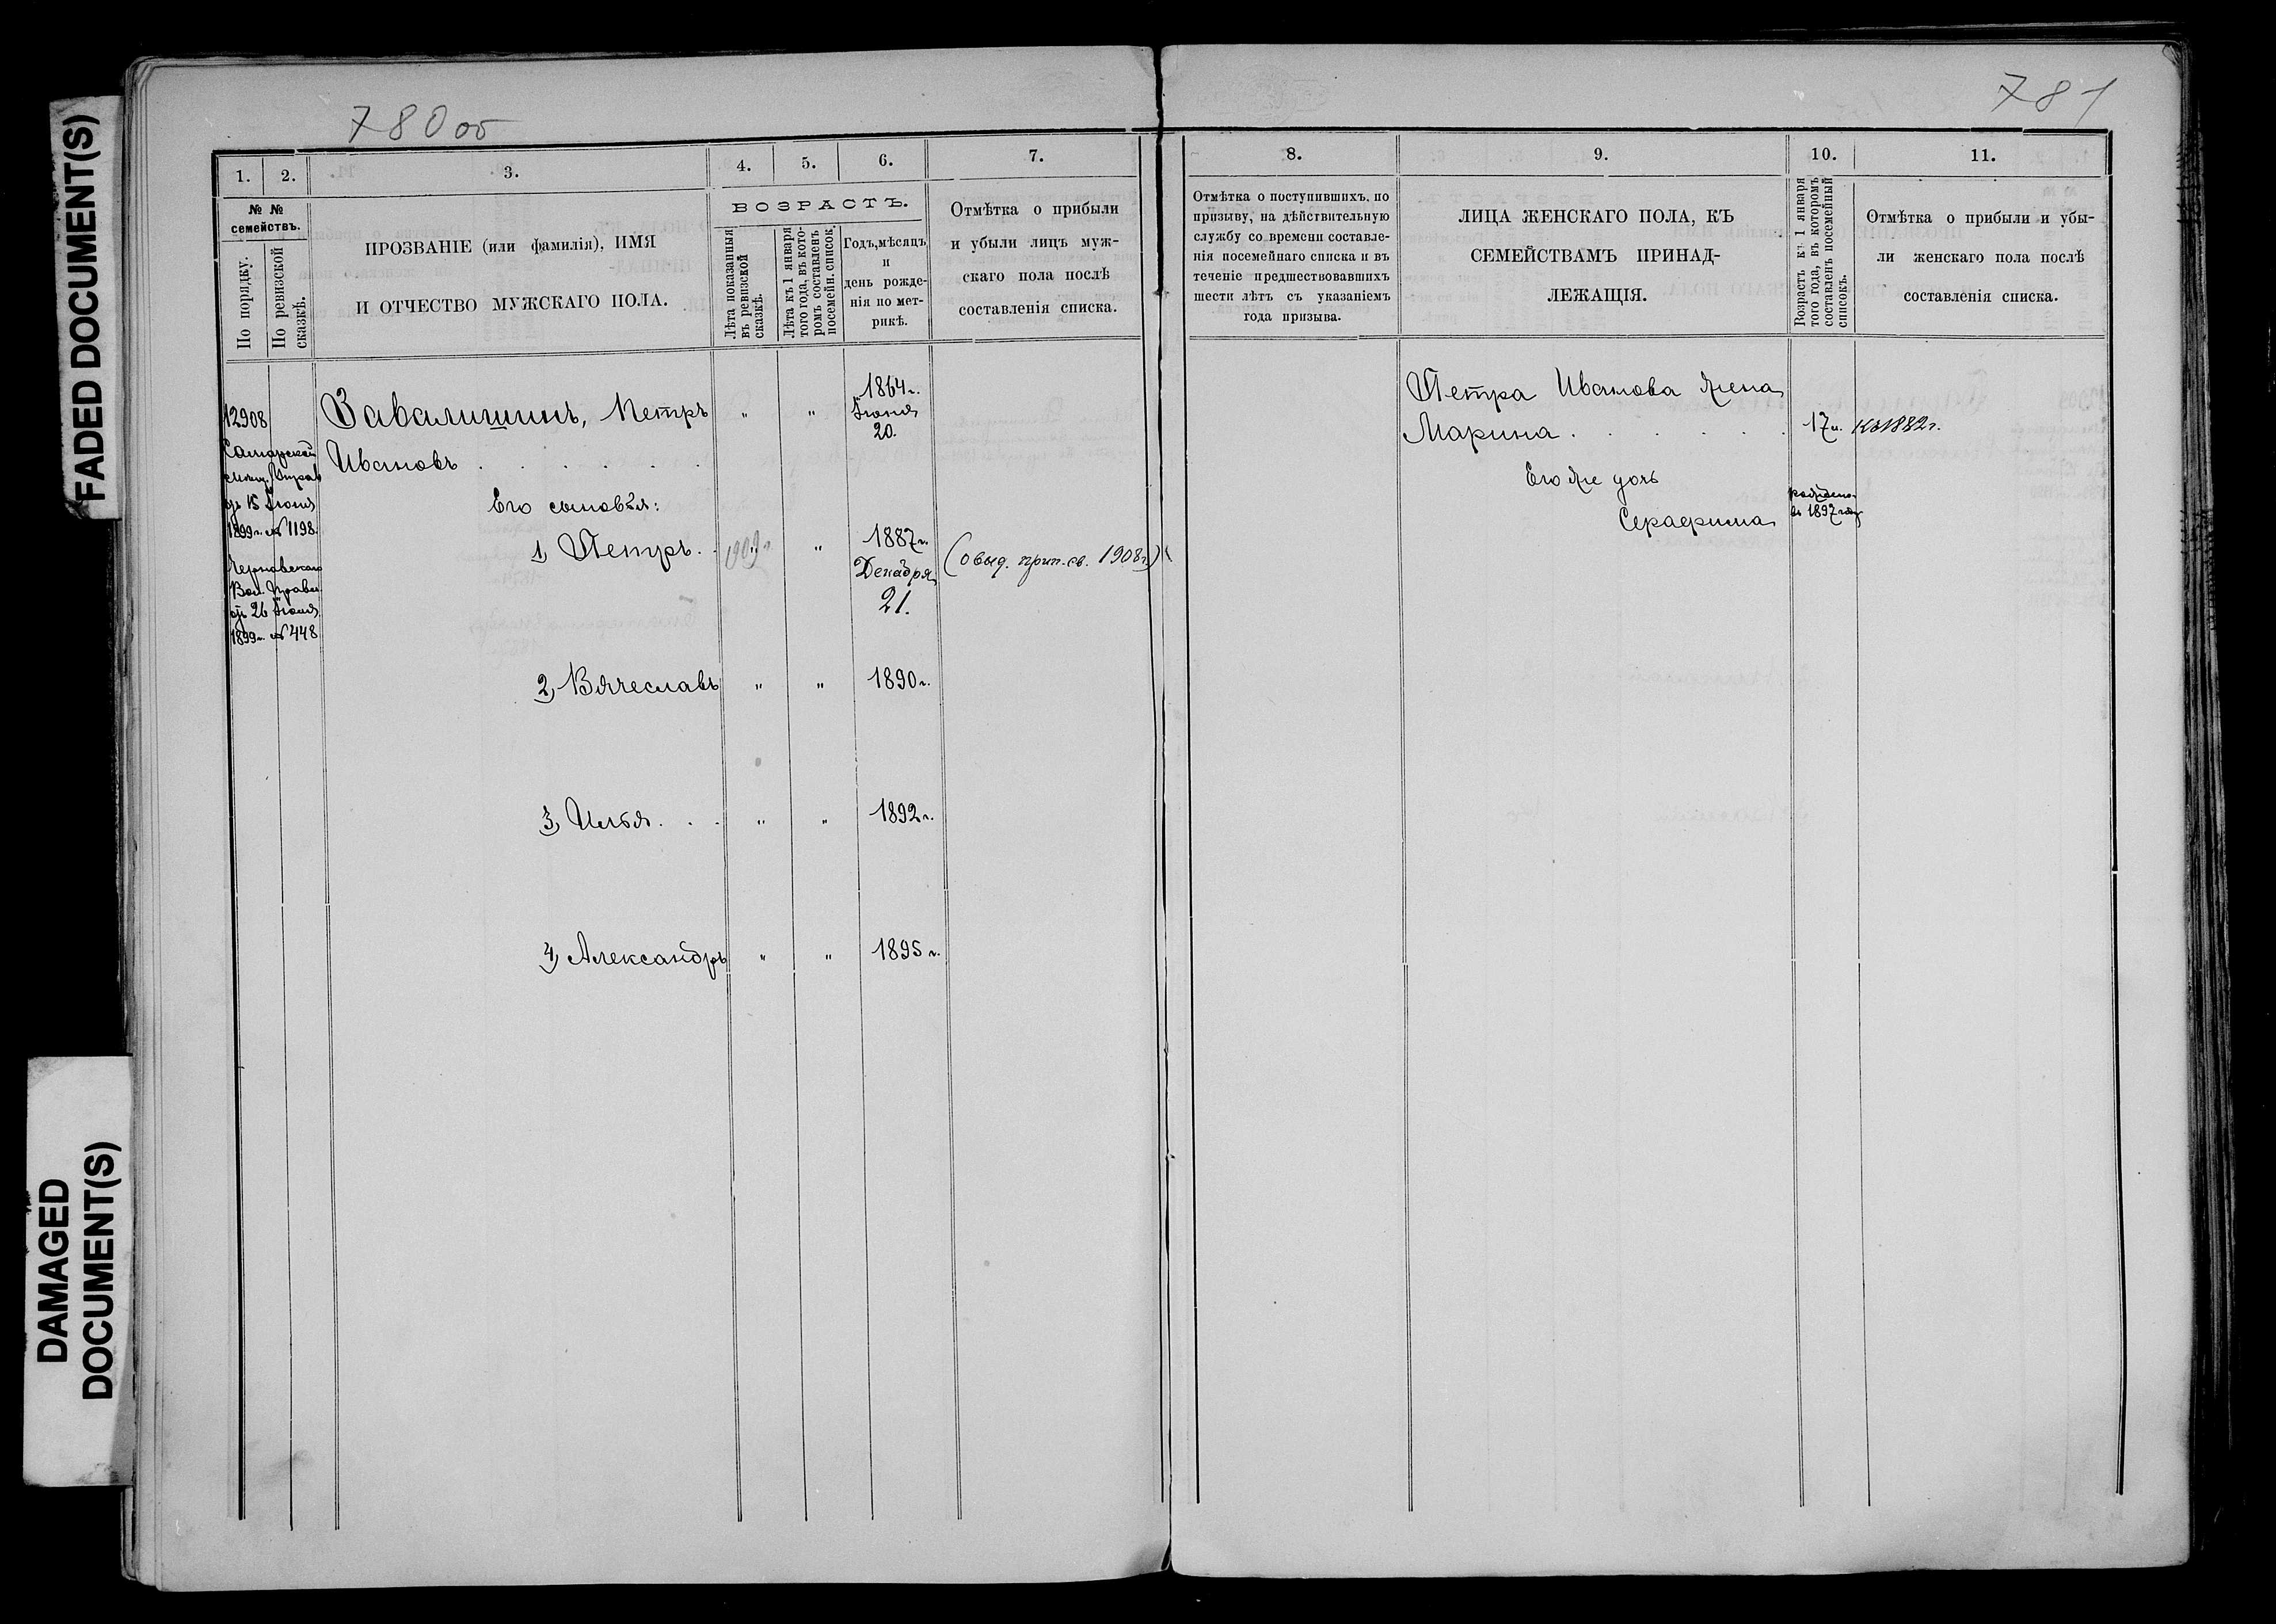 FADED DOCUMENT(S)
DAMAGED
DOCUMENT(S)
780 об
1.
2.
3.
4.
5.
6.
7.
№ №
семействъ.
По порядку.
По ревизской
сказкѣ.
ПРОЗВАНІЕ (или фамилія), ИМЯ
И ОТЧЕСТВО МУЖСКАГО ПОЛА.
ВОЗРАСТЪ.
Лѣта показанныя
въ ревизской
сказкѣ.
Лѣта къ 1 января
того года, въ кото-
ромъ составленъ
посемейн. список.
Годъ, мѣсяцъ
и
день рожде-
нія по мет-
рикѣ.
Отмѣтка о прибыли
и убыли лицъ муж-
скаго пола послѣ
составленія списка.
12908
Самарской
мѣщ. Управ
отъ 15 Іюня
1899 г. № 1198.
Вол. Правл.
отъ 26 Іюня
1899 г. № 448
Завалишинъ, Петръ
Ивановъ
" "
1864 г.
Іюня
20.
Его сыновья:
1, Петръ.
1909 г
" "
1887 г.
Декабря
21.
(о выд. прип. св. 1908 г.)
2, Вячеславъ
" "
1890 г.
3, Илья
" "
1892 г.
4, Александръ
" "
1895 г.
781
8.
9.
10.
11.
Отмѣтка о поступившихъ, по
призыву, на дѣйствительную
службу со времени составле-
нія посемейнаго списка и въ
теченіе предшествовавшихъ
шести лѣтъ съ указаніемъ
года призыва.
ЛИЦА ЖЕНСКАГО ПОЛА, КЪ
СЕМЕЙСТВАМЪ ПРИНАД-
ЛЕЖАЩІЯ.
Возрастъ къ 1 января
того года, въ которомъ
составленъ посемейный
списокъ.
Отмѣтка о прибыли и убы-
ли женскаго пола послѣ
составленія списка.
Петра Иванова жена
Марина
17 л. къ 1882 г.
Его же дочь
Серафима
рождена
въ 1897 году